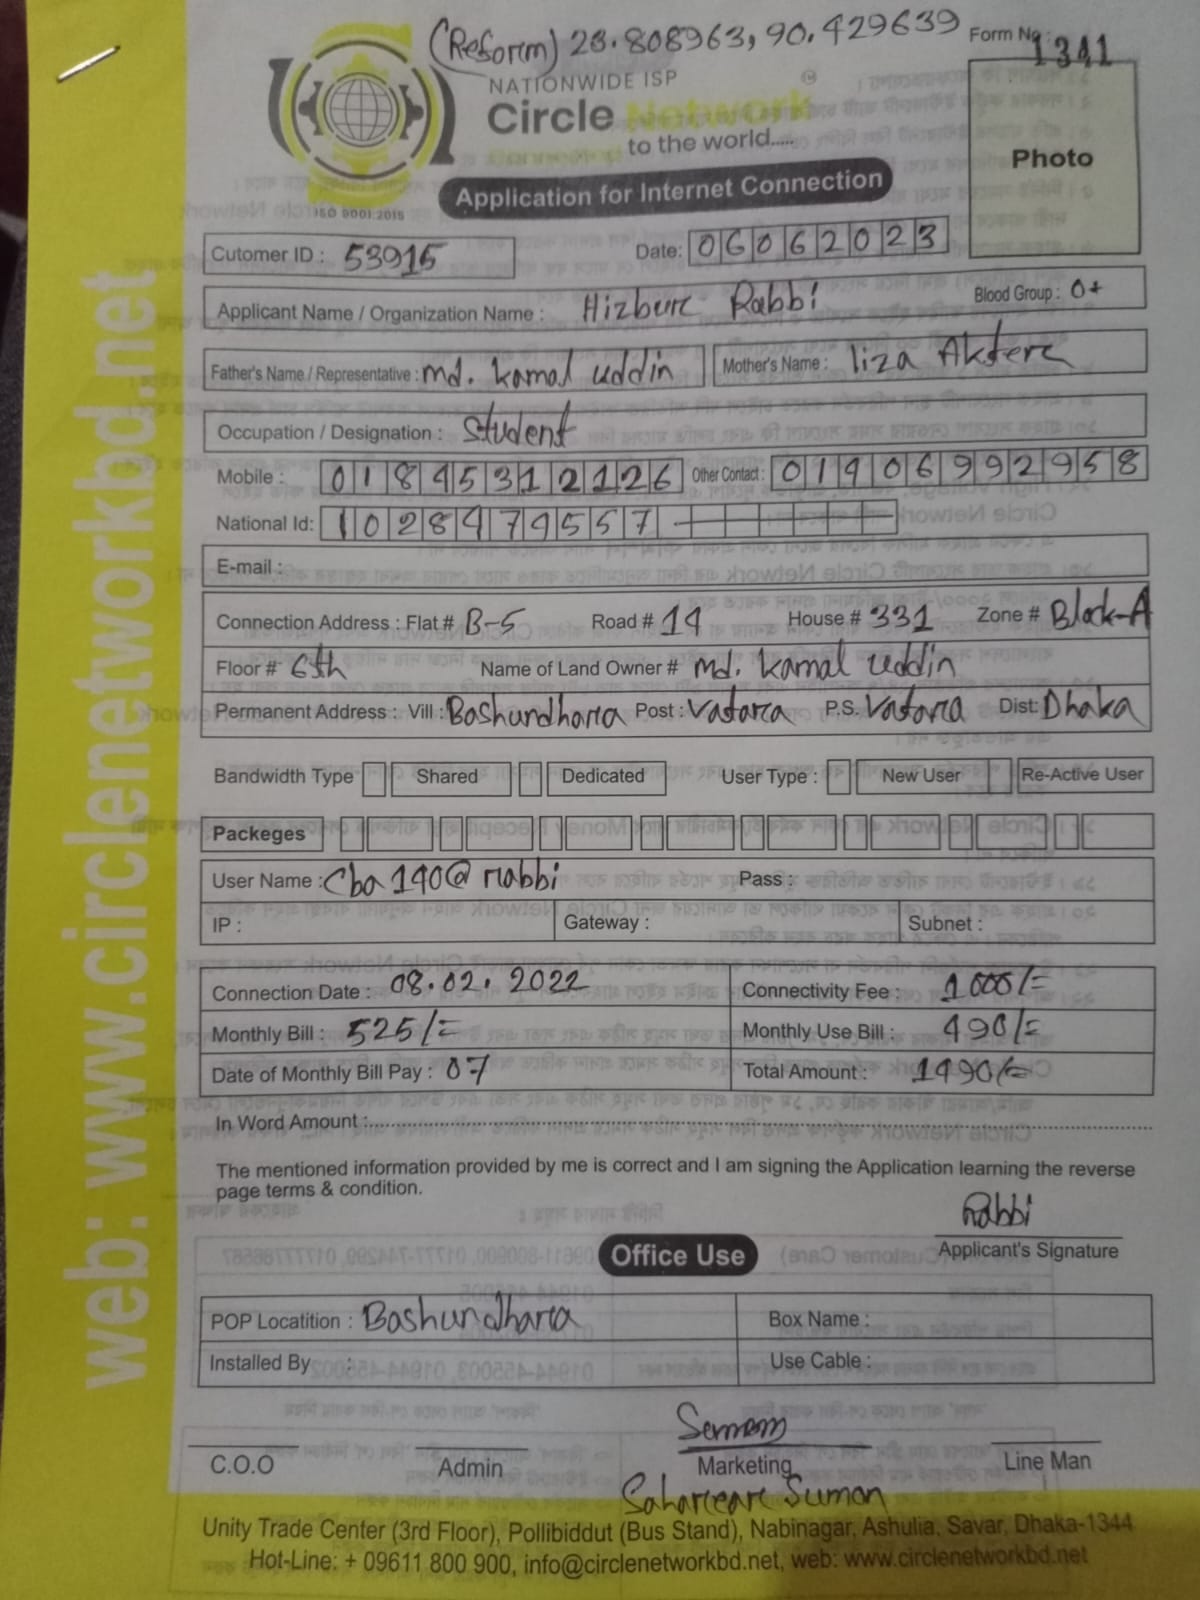 (Reform) 23.808963, 90.429639 Form No: 1341
NATIONWIDE ISP
Circle Network
to the world.....
ISO 9001:2015
Application for Internet Connection
Photo
Cutomer ID : 53915 Date: 06062023
Applicant Name / Organization Name : Hizbur Rabbi Blood Group : O+
Father's Name / Representative : Md. Kamal Uddin Mother's Name : liza Akter
Occupation / Designation : Student
Mobile : 01845312126 Other Contact : 01906992958
National Id: 1028479557
E-mail :
Connection Address : Flat # B-5 Road # 14 House # 331 Zone # Block-A
Floor # 6th Name of Land Owner # Md. Kamal Uddin
Permanent Address : Vill : Bashundhara Post : Vatara P.S. Vatara Dist: Dhaka
Bandwidth Type Shared Dedicated User Type : New User Re-Active User
Packeges
User Name : Cba140@rabbi Pass :
IP : Gateway : Subnet :
Connection Date : 08.02.2022 Connectivity Fee : 1000/=
Monthly Bill : 525/= Monthly Use Bill : 490/=
Date of Monthly Bill Pay : 07 Total Amount : 1490/=
In Word Amount :
The mentioned information provided by me is correct and I am signing the Application learning the reverse
page terms & condition.
Rabbi
Applicant's Signature
Office Use
POP Locatition : Bashundhara Box Name :
Installed By : Use Cable :
C.O.O Admin Marketing Line Man
Suman
Unity Trade Center (3rd Floor), Pollibiddut (Bus Stand), Nabinagar, Ashulia, Savar, Dhaka-1344
Hot-Line: + 09611 800 900, info@circlenetworkbd.net, web: www.circlenetworkbd.net
web: www.circlenetworkbd.net